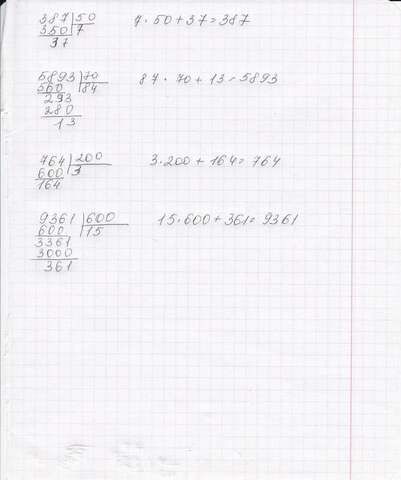 387 50 7 · 50 + 37 = 387
350 7
37
5893 70 87 · 70 + 13 = 5893
560 84
293
280
13
764 200 3 · 200 + 164 = 764
600 3
164
9361 600 15 · 600 + 361 = 9361
600 15
3361
3000
361